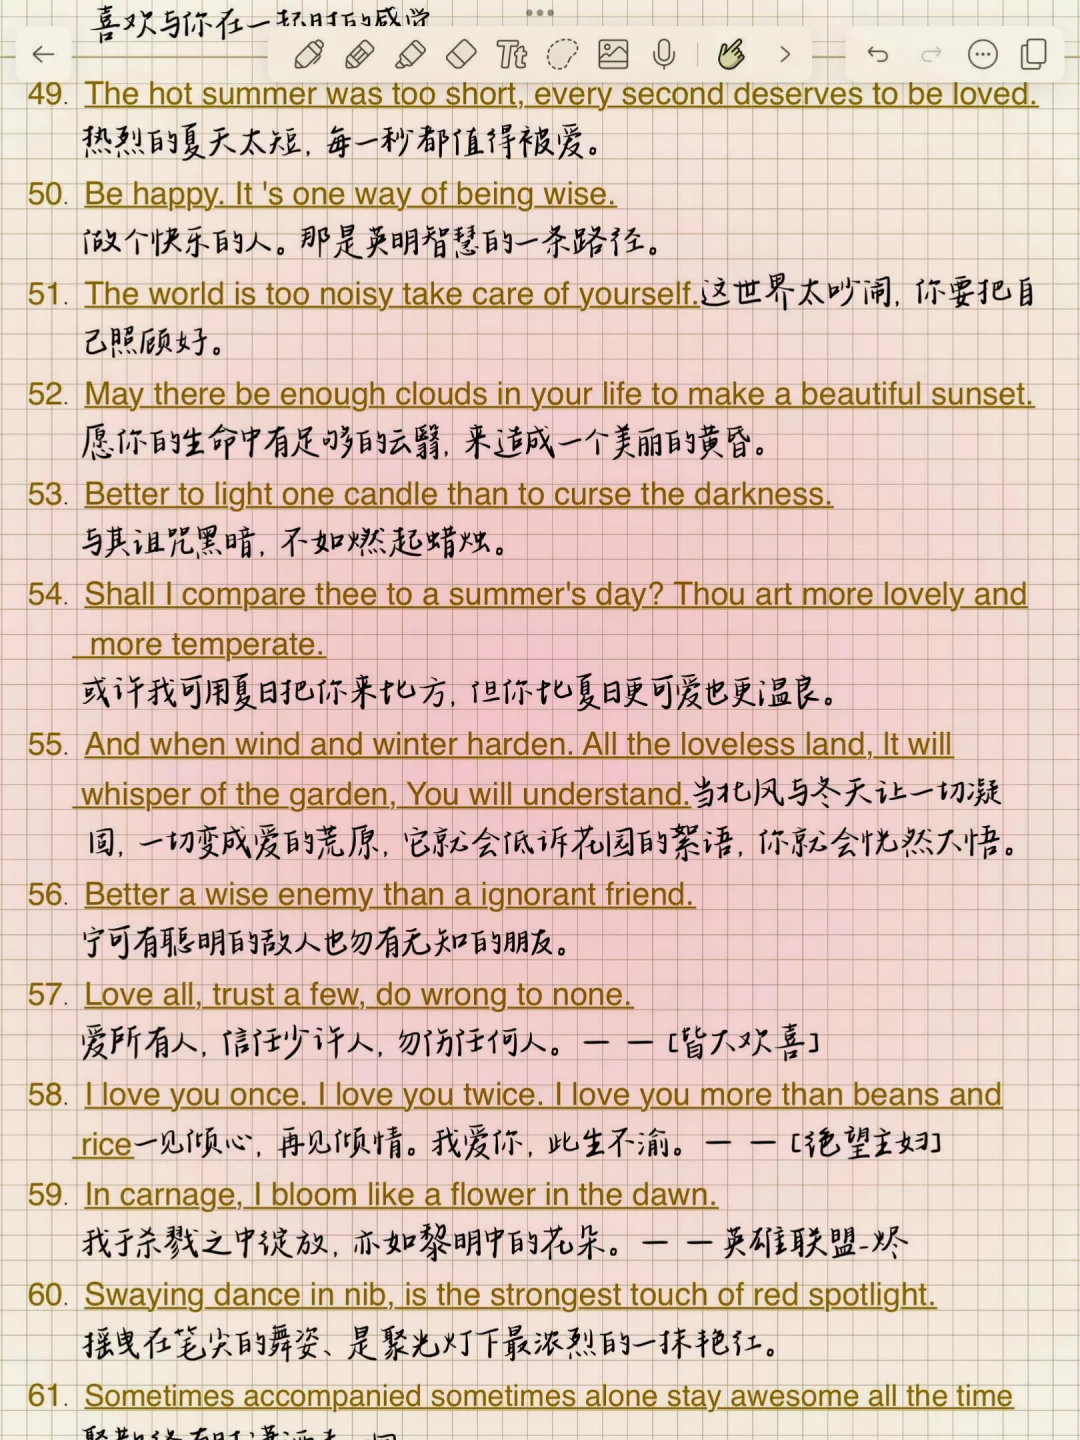 喜欢与你在一起时的感觉
Tt
49. The hot summer was too short, every second deserves to be loved.
热烈的夏天太短, 每一秒都值得被爱。
50. Be happy. It 's one way of being wise.
做个快乐的人。那是英明智慧的一条路径。
51. The world is too noisy take care of yourself.这世界太吵闹, 你要把自
己照顾好。
52. May there be enough clouds in your life to make a beautiful sunset.
愿你的生命中有足够的云翳, 来造成一个美丽的黄昏。
53. Better to light one candle than to curse the darkness.
与其诅咒黑暗, 不如燃起蜡烛。
54. Shall I compare thee to a summer's day? Thou art more lovely and
more temperate.
或许我可用夏日把你来比方, 但你比夏日更可爱也更温良。
55. And when wind and winter harden. All the loveless land, It will
whisper of the garden, You will understand.当北风与冬天让一切凝
固, 一切变成爱的荒原, 它就会低诉花园的絮语, 你就会恍然大悟。
56. Better a wise enemy than a ignorant friend.
宁可有聪明的敌人也勿有无知的朋友。
57. Love all, trust a few, do wrong to none.
爱所有人, 信任少许人, 勿伤任何人。— — [皆大欢喜]
58. I love you once. I love you twice. I love you more than beans and
rice一见倾心, 再见倾情。我爱你, 此生不渝。— — [绝望主妇]
59. In carnage, I bloom like a flower in the dawn.
我于杀戮之中绽放, 亦如黎明中的花朵。— — 英雄联盟-烬
60. Swaying dance in nib, is the strongest touch of red spotlight.
摇曳在笔尖的舞姿、是聚光灯下最浓烈的一抹艳红。
61. Sometimes accompanied sometimes alone stay awesome all the time